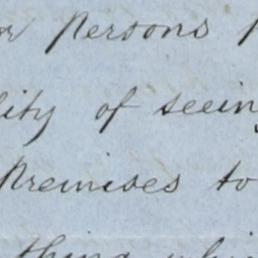 or persons p
lity of seein
Premises to
thing whi